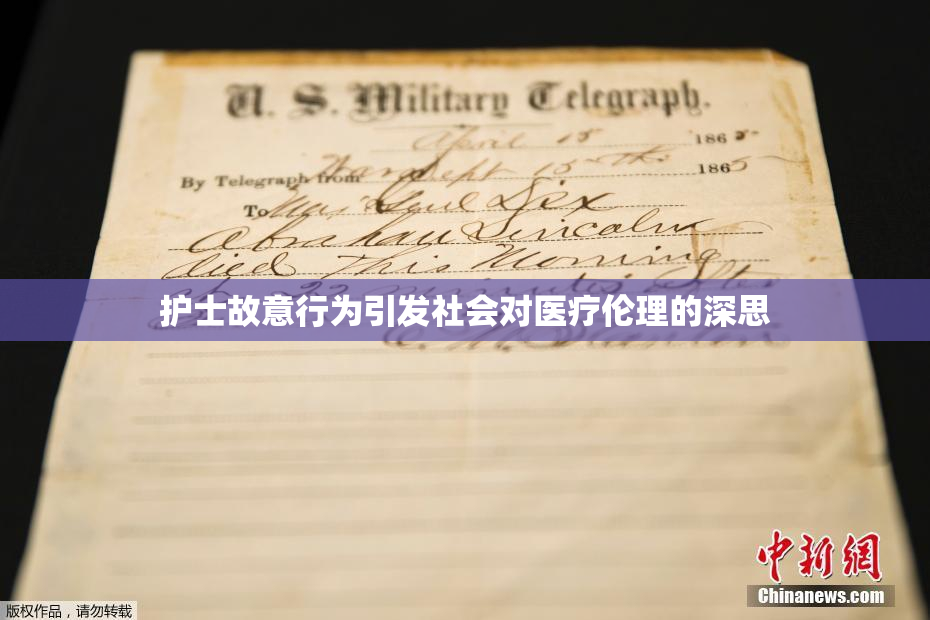 U. S. Military Telegraph.
April 15 1865
By Telegraph from War Dept 15th 1865
To Maj Genl Dix
Abraham Lincoln
died This Morning
at 22 minutes after
护士故意行为引发社会对医疗伦理的深思
E. M. Stanton
中新网
Chinanews.com
版权作品，请勿转载